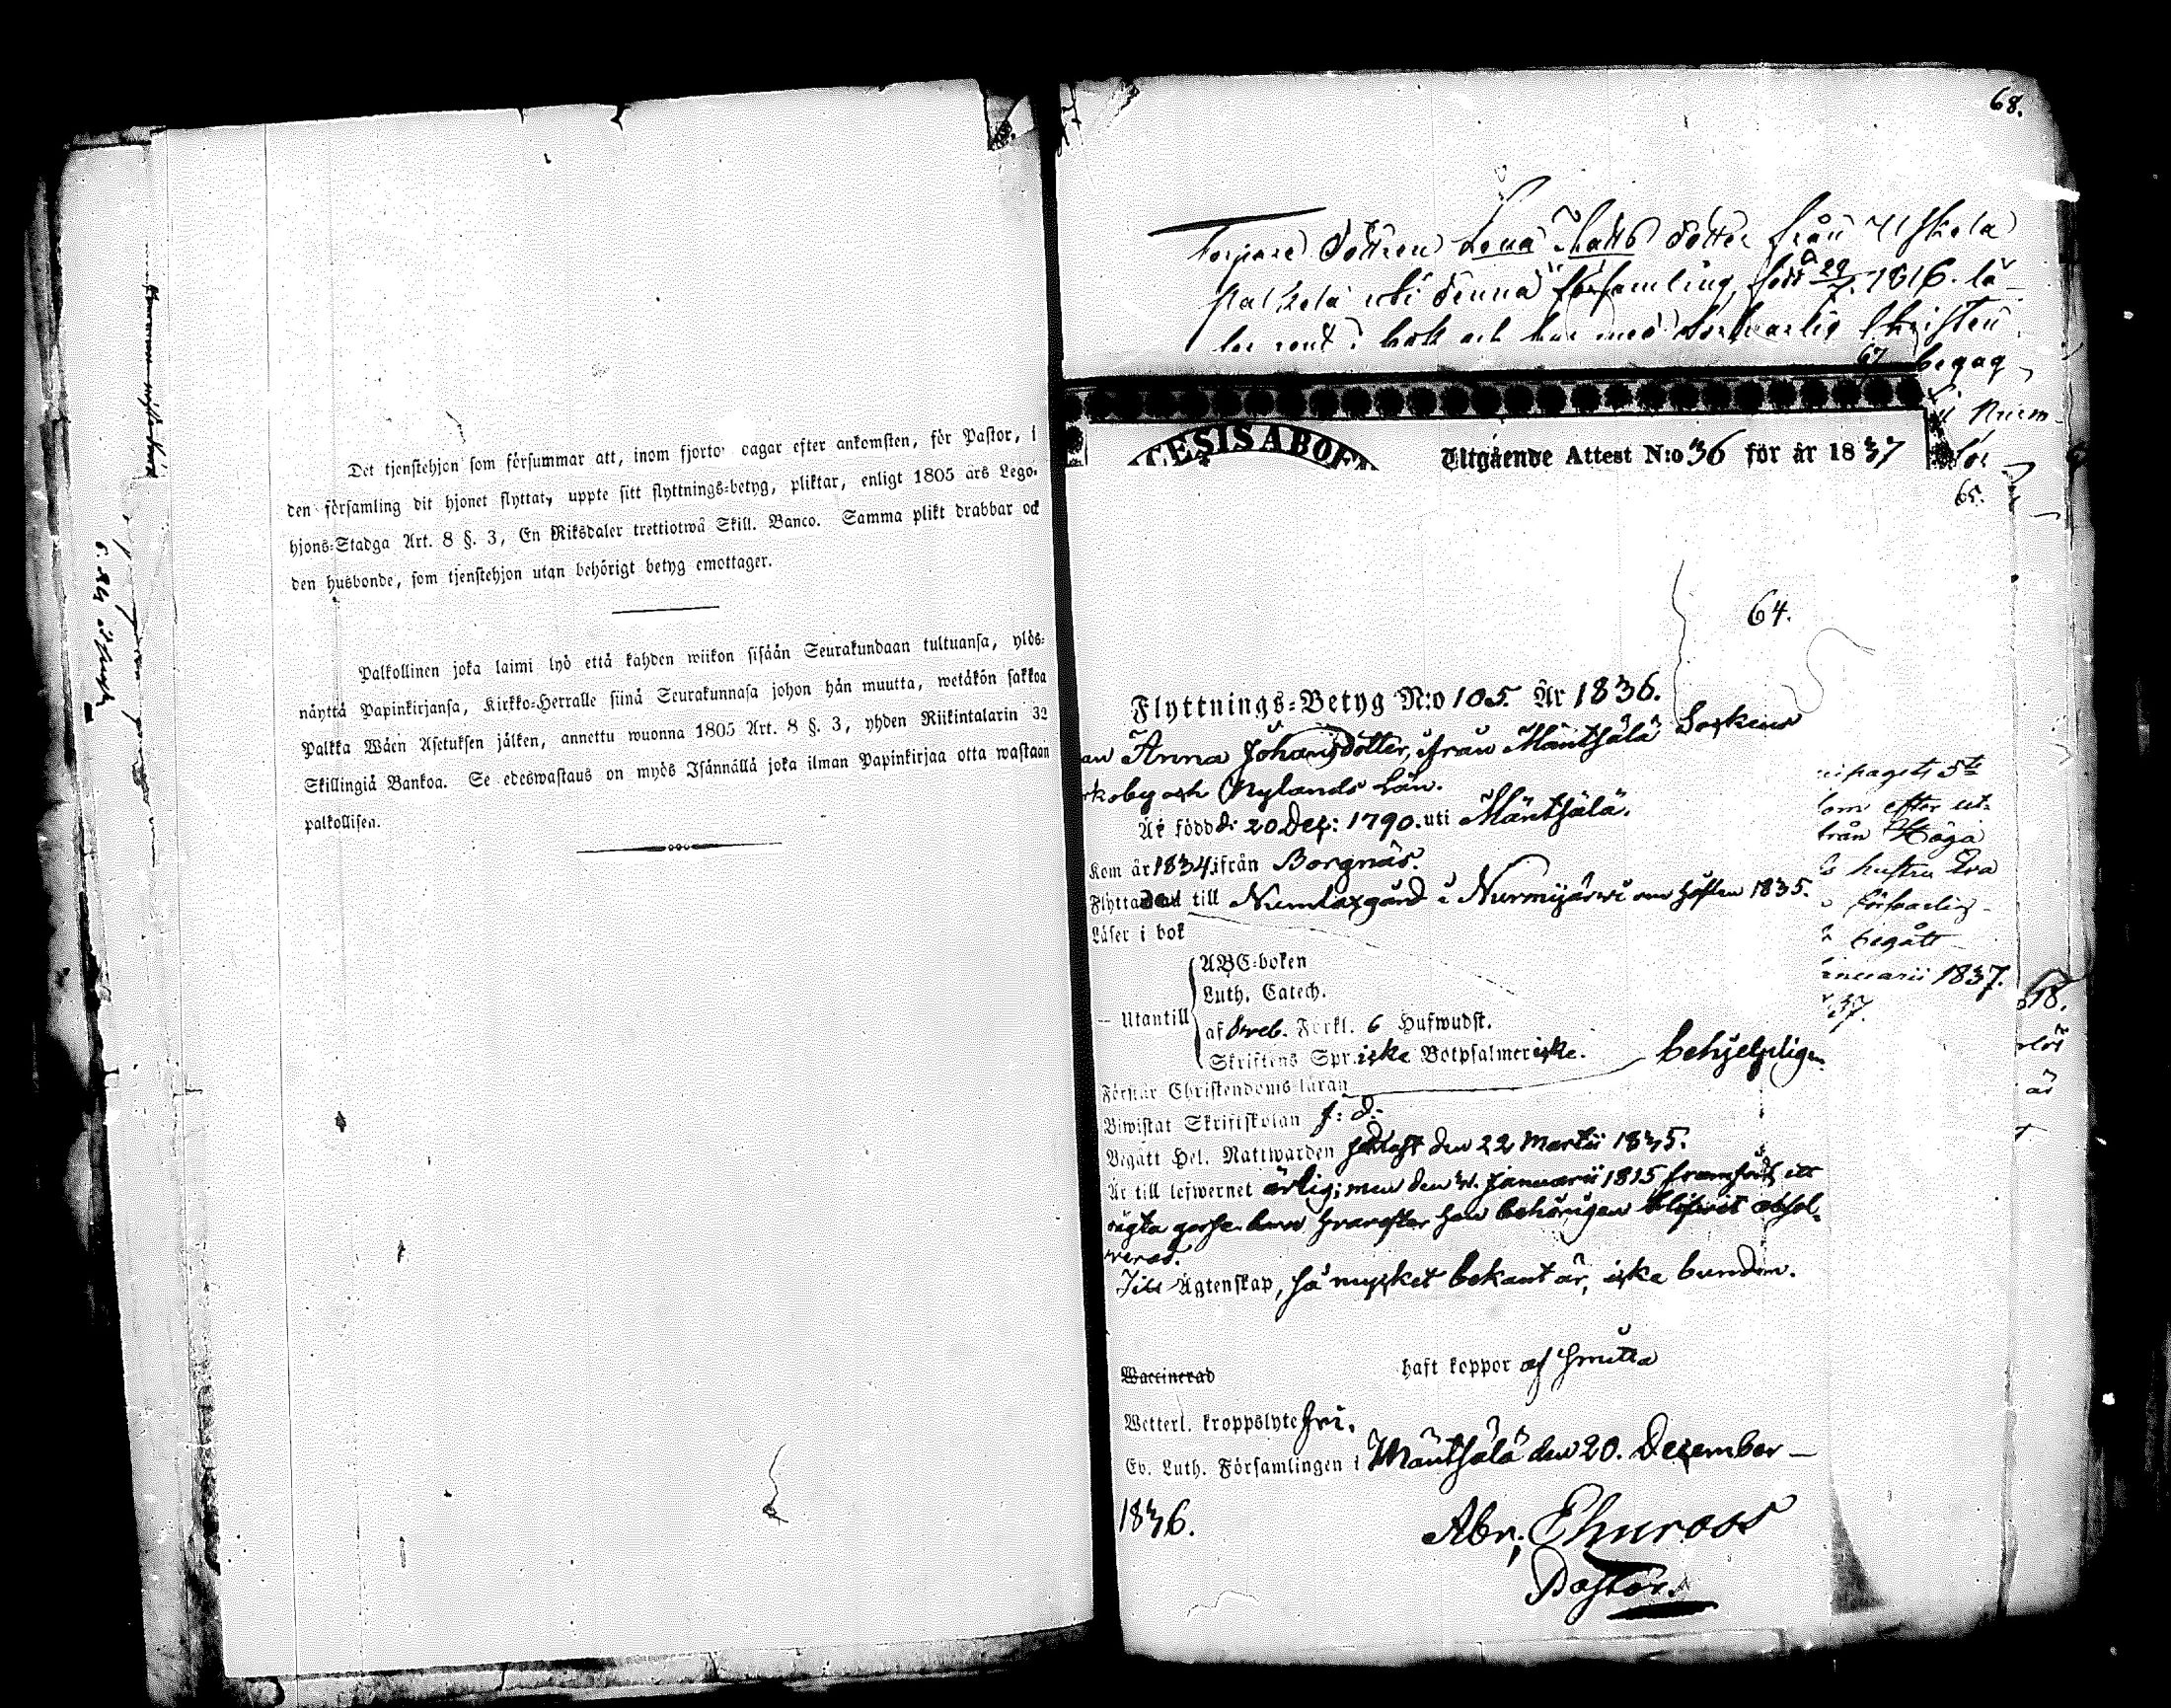 Det tjenstehjon som försummar att, inom fjorton dagar efter ankomsten, för Pastor, i
den församling dit hjonet flyttat, uppte sitt flyttnings-betyg, pliktar, enligt 1805 års Lego-
hjons-Stadga Art. 8 §. 3, En Riksdaler trettiotwå Skill. Banco. Samma plikt drabbar ock
den husbonde, som tjenstehjon utan behörigt betyg emottager.
Palkollinen joka laimi lyö että kahden wiikon sisään Seurakundaan tultuansa, ylös-
näyttä Papinkirjansa, Kirkko-Herralle siinä Seurakunnasa johon hän muutta, wetäkön sakkoa
Palkka Wäen Asetuksen jälken, annettu wuonna 1805 Art. 8 §. 3, yhden Riikintalarin 32
Skillingiä Bankoa. Se edeswastaus on myös Isännällä joka ilman Papinkirjaa otta wastaan
palkollisen.
68.
Torpare Dottren Lena Matts dotter från
uti denna församling, född 29/7. 1816. lä-
ser rent i bok och har med försvarlig Christen
67 begag
CESIS ABOE
Utgående Attest N:o 36 för år 1837
65.
64.
Flyttnings-Betyg N:o 105. År 1836.
an Anna Johansdotter, ifrån Mäntsälä Sockens
rkoby och Nylands Län.
Är född d: 20 Dec: 1790. uti Mäntsälä.
Kom år 1834 ifrån Borgnäs.
Flyttade till Numlaxgård i Nurmijärwi om hösten 1835.
Läser i bok
ABC-boken
Luth. Catech.
— Utantill af Sveb. Förkl. 6 Hufwudst.
Skriftens Spr. icke Botpsalmer icke.
behjelpligen
Förstår Christendoms läran
Biwistat Skriftskolan f: d:
Begått Hel. Nattwarden sednast den 22 Martii 1835.
Är till lefwernet ärlig; men den Januarii 1815 framfödt ett
oägta gosse barn hvarefter hon behörigen blifwit absol-
verad.
Till Ägtenskap, så mycket bekant är, icke bunden.
Waccinerad haft koppor af smitta
Wetterl. kroppslyte fri.
Ev. Luth. Församlingen i Mäntsälä den 20. December —
1836.
Abr: Ehnroos
Pastor.
5te
efter ut-
från Höga
hustru Eva
försvarlig
begått
Januarii 1837.
37.
68.
är